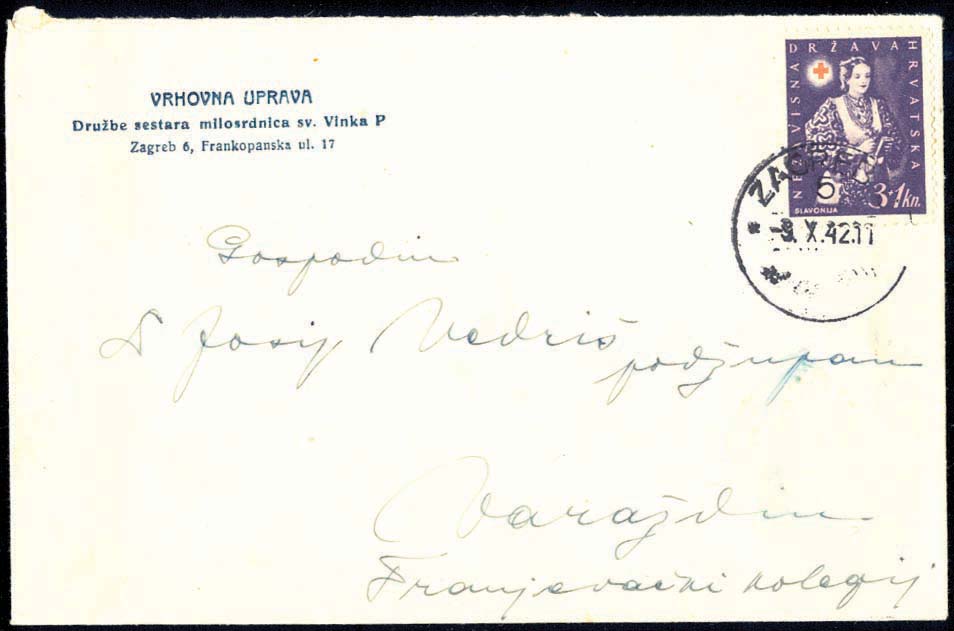 VRHOVNA UPRAVA
Družbe sestara milosrdnica sv. Vinka P
Zagreb 6, Frankopanska ul. 17
NEZAVISNA DRŽAVA HRVATSKA
3+1 kn.
SLAVONIJA
ZAGREB
6
-9. X. 42.11
Gospodin
Dr Josip Vedriš
podžupan
Varaždin
Franjevački kolegij